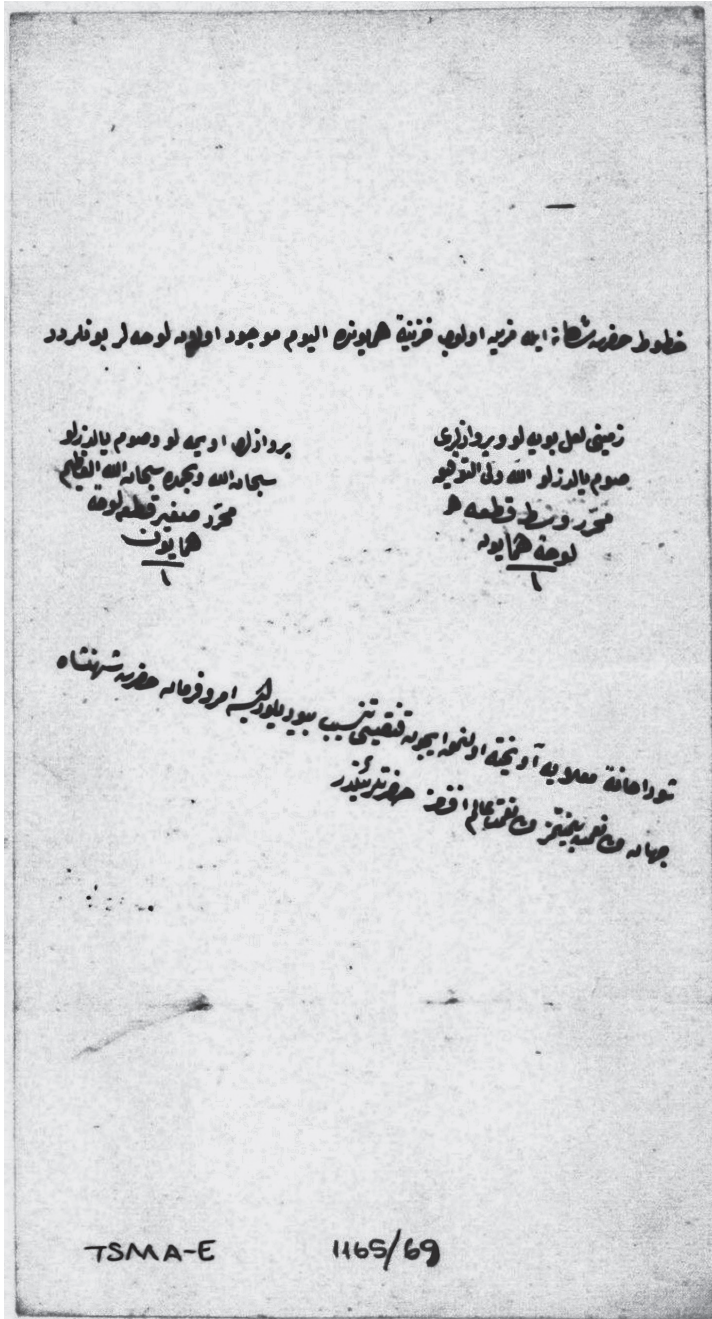 خطوط حضرت شاهانه ایله مزین اولوب خزینهٔ همایونده الیوم موجود اولان لوحه لر بونلردر
زمینی لعل بویه لو و پروازلری
صوم یالدزلو الله ولی التوفیق
محرر وسط قطعه ده
لوحهٔ همایون
١
پروازلری اویمه لو وصوم یالدزلو
سبحان الله وبحمده سبحان الله العظیم
محرر صغیر قطعه لوحهٔ
همایون
١
معلایه آویخته اولنمق ایچون قنغیسی تنسیب بیوریلور ایسه امر وفرمان حضرت شهنشاه
جهان حضرتلرینکدر
TSMA-E 1165/69